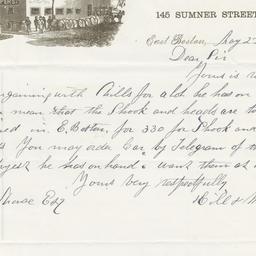 145 SUMNER STREET
East Boston, May 2
Dear Sir
Yours is
with Mills for a lot he has on
mean that the Shook and heads are to
in E. Boston, for 330 for Shook and
You may order Car by Telegram of
he has on hand & want them at
Yours very respectfully
Hill &
Esq